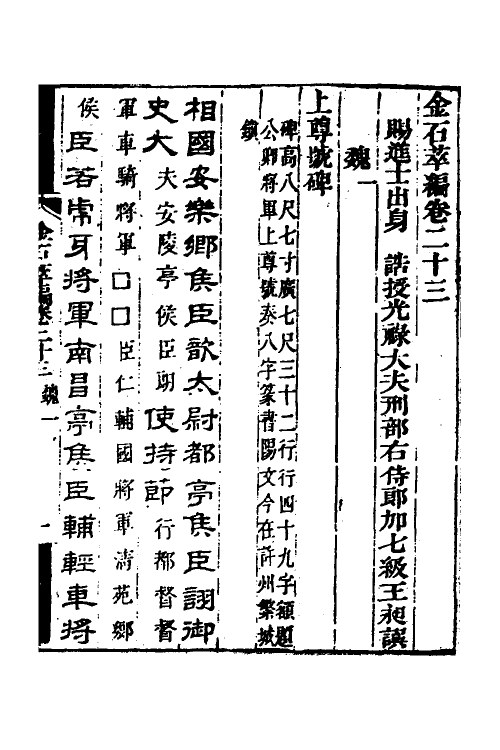 金石萃編卷二十三
賜進士出身　誥授光祿大夫刑部右侍郎加七級王昶譔
魏一
上尊號碑
碑高八尺七寸廣七尺三十二行行四十九字額題
公卿將軍上尊號奏八字篆書陽文今在許州繁城
鎮
相國安樂鄉侯臣歆太尉都亭侯臣詡御
史大夫安陵亭侯臣朗使持節行都督督
軍車騎將軍□□臣仁輔國將軍清苑鄉
侯臣若虎牙將軍南昌亭侯臣輔輕車將
金石萃編卷二十三　魏一
一